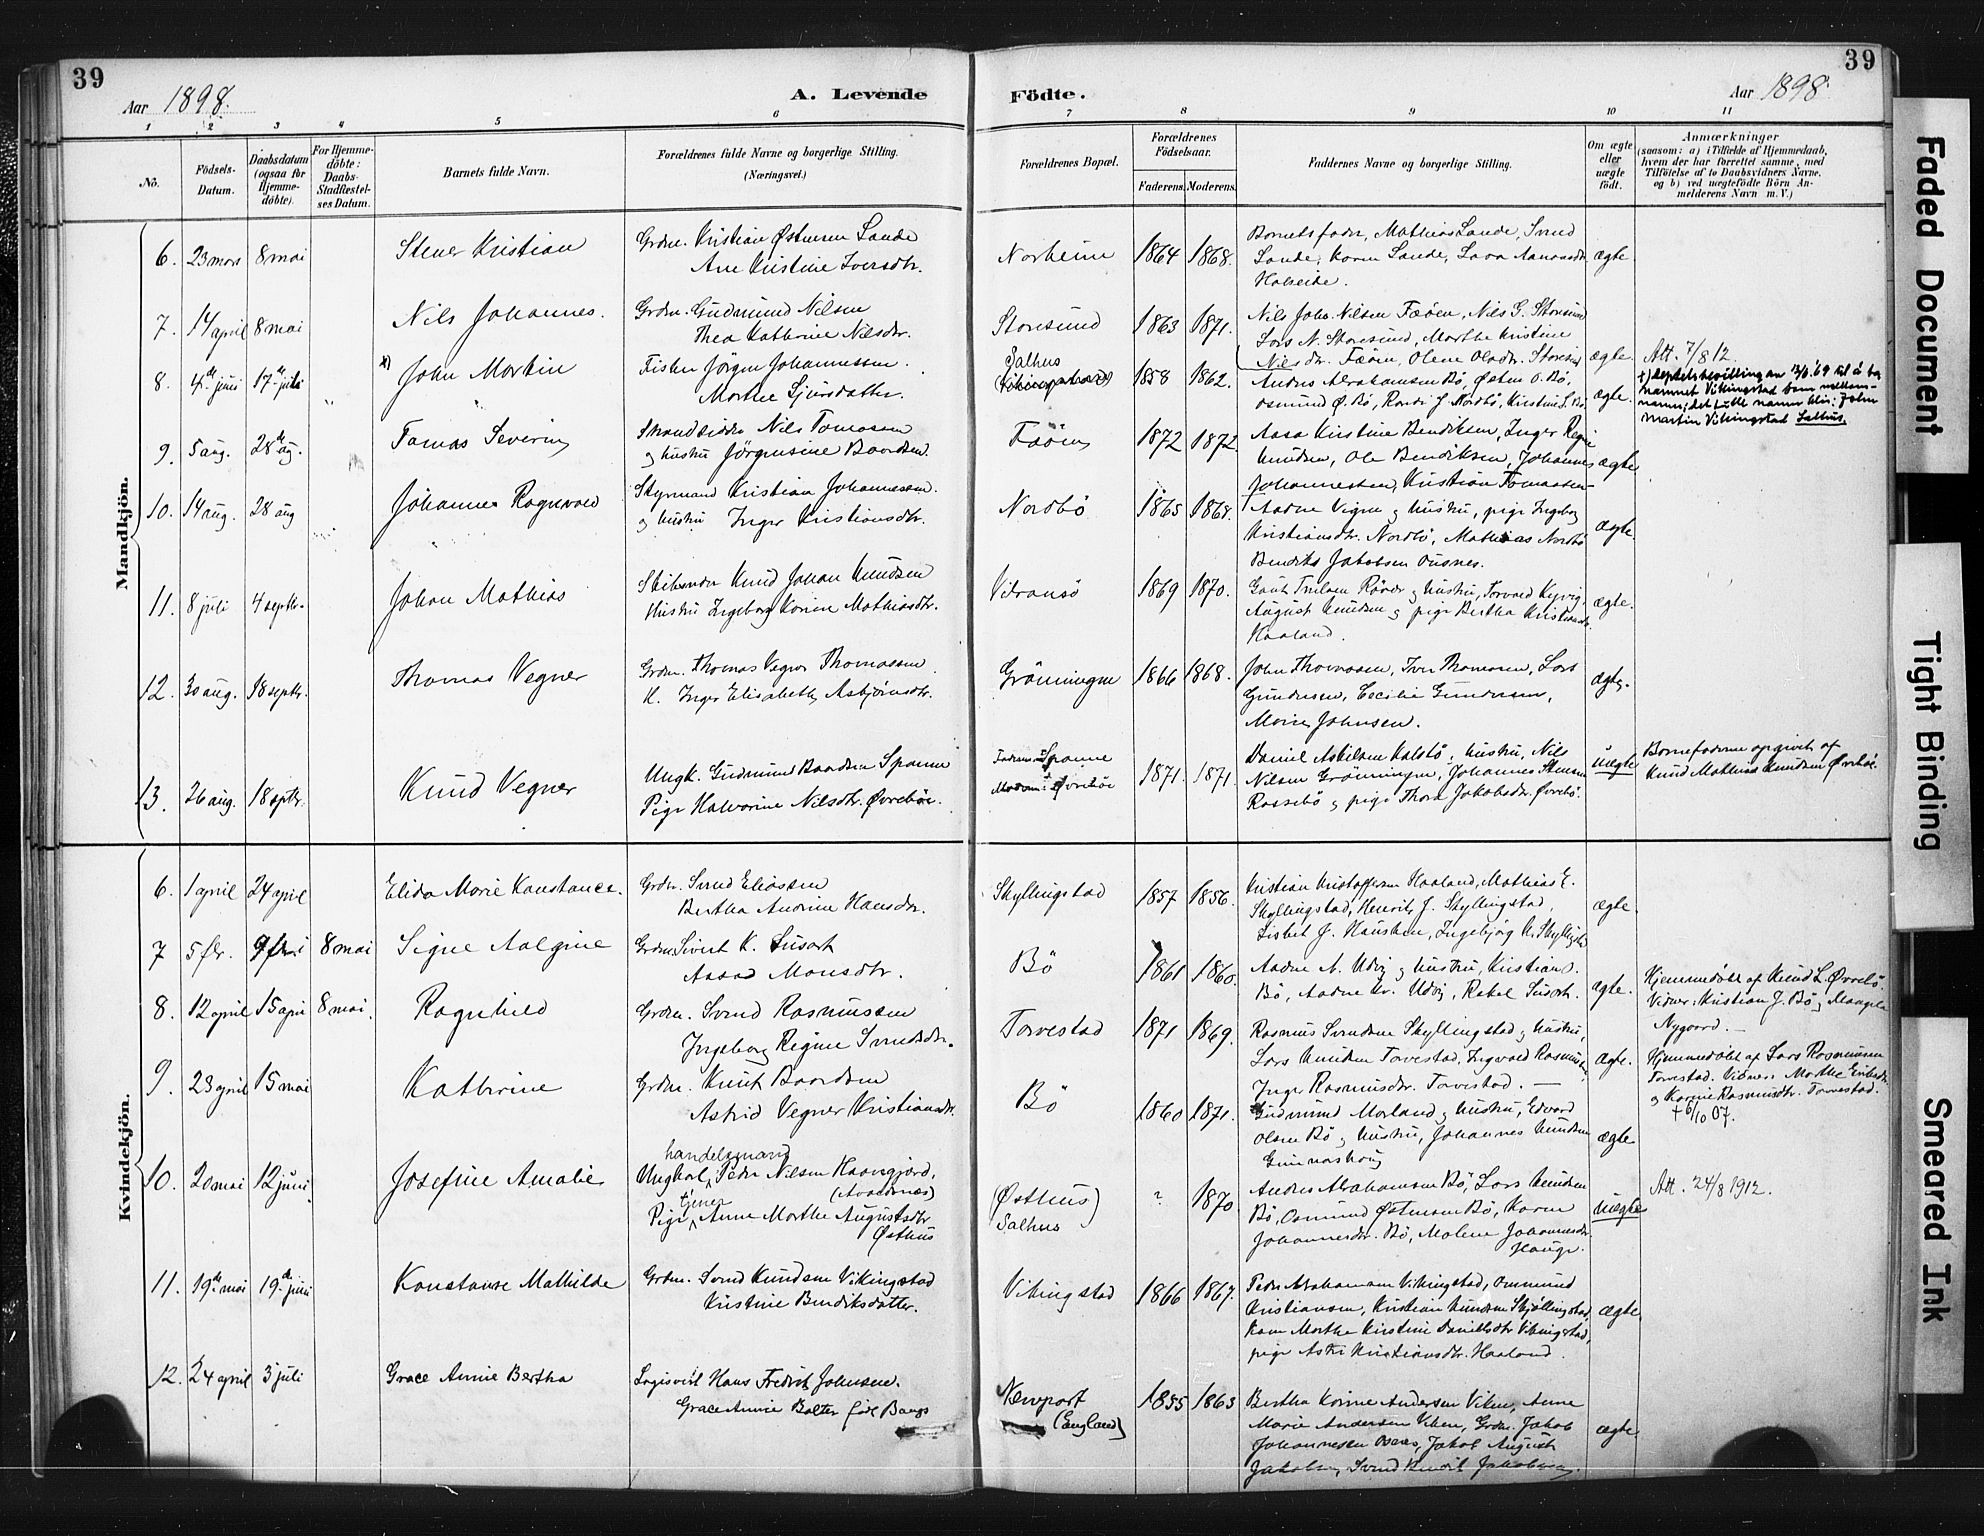 39
Aar 1898.
A. Levende
Födte.
Aar 1898.
39
1 2 3 4 5 6 7 8 9 10 11
No.
Födsels-
Datum.
Daabsdatum
(ogsaa for
Hjemme-
döbte).
For Hjemme-
döbte:
Daabs-
Stadfæstel-
ses Datum.
Barnets fulde Navn.
Forældrenes fulde Navne og borgerlige Stilling.
(Næringsvei.)
Forældrenes Bopæl.
Forældrenes
Födselsaar.
Faderens. Moderens.
Faddernes Navne og borgerlige Stilling.
Om ægte
eller
uægte
födt.
Anmærkninger
(saasom: a) i Tilfælde af Hjemmedaab,
hvem der har forrettet samme, med
Tilföielse af to Daabsvidners Navne,
og b) ved uægtefödte Börn An-
melderens Navn m. V.)
Mandkjön.
6. 23 mars 8 mai Stener Kristian
Grdm. Kristian Østensen Lande
Ane Kristine Iversdtr.
Norheim 1864 1868.
Barnets fader, Mathias Lande, Svend
Lande, Karen Lande, Lava Aanensdtr.
Halseide.
ægte.
7. 14 april 8 mai Nils Johannes.
Grdm. Gudmund Nilsen
Thea Kathrine Nilsdtr.
Storesund 1863 1871.
Nils Joh. Nilsen Fæöen, Nils G. Storesund
Lars N. Storesund, Marthe Kristine
Nilsdtr. Fæöen, Olene Olsdtr. Storesund
ægte.
8. 4de juni 17de juli x) John Martin
Fisker Jörgen Johannessen.
Marthe Sjursdatter.
Salhus
1858 1862.
Anders Abrahamsen Bö, Östen O. Bö,
Osmund Ø. Bö, Randi J. Nordbö, Kirstine L. Bö
ægte.
Att. 7/8 12.
namnet Vikingstad som mellom-
namn; det fulle namn blir: John
Martin Vikingstad Salhus.
9. 5 aug. 28de ag. Tomas Severin
Strandsidder Nils Tomassen
og hustru Jörgensine Baardsen.
Fæöen 1872 1872.
Aasa Kristine Bendiksen, Inger Regine
Knudsen, Ole Bendiksen, Johannes
Johannessen, Kristian Tomassen
ægte
10. 14 aug. 28 aug Johannes Ragnvald
Styrmand Kristian Johannessen.
og hustru Inger Kristiansdtr.
Nordbö 1865 1868.
Aadne Vigen og hustru, pige Ingeborg
Kristiansdtr. Nordbö, Mathias Nordbö
Bendiks Jakobsen Ousnes.
ægte.
11. 8 juli 4 septr. Johan Mathias
Skibsreder Knud Johan Knudsen
Hustru Ingeborg Karine Mathiasdtr.
Vibransö 1869 1870.
Gaut Truelsen Röver og hustru, Torvald Kyvig,
August Knudsen og pige Bertha Kristiansdtr.
Haaland.
ægte.
12. 30 aug. 18 septr. Thomas Vegner
Grdm. Thomas Vegner Thomassen
H. Inger Elisabeth Asbjörnsdtr.
Gröningen 1866 1868.
John Thomassen, Iver Thomassen, Lars
Gundersen, Cecilie Gundersen,
Marie Johnsen.
ægte.
13. 26 aug. 18 septr. Knud Vegner
Ungk. Gudmund Baardsen Spanne
Pige Halvorine Nilsdtr. Øvrebö.
Faderens: Spanne
Moderens: Øvrebö
1871. 1871.
Daniel Askildsen Kalstö, hustru, Nils
Nilsen Gröningen, Johannes Stensen
Rossebö og pige Thora Jakobsdtr. Øvrebö.
uægte
Barnefaderen opgivet af
Knud Mathias Knudsen Øvrebö.
Kvindekjön.
6. 1 april 24 april Elida Marie Konstance.
Grdm. Svend Eliassen
Bertha Andrine Hansdtr.
Skyllingstad 1857 1856.
Kristian Kristoffersen Haaland, Mathias E.
Skyllingstad, Henrik J. Skyllingstad,
Lisbet J. Hausken, Ingebjörg K. Skyllingstd
ægte.
7 5 fbr. 9 8 mai Signe Aalgine
Grdm. Sivert K. Susort
Aasa Monsdtr.
Bö 1861 1860.
Aadne A. Udvig og hustru, Kristian J.
Bö, Aadne Kr. Udvig, Rakel Susort.
ægte.
Hjemmedöbt af Knud L. Øvrebö.
Vidner: Kristian J. Bö og Mangela
Nygaard.
8. 12 april 15 april 8 mai. Ragnhild
Grdm. Svend Rasmussen
Ingeborg Regine Svendsdtr.
Torvestad 1871 1869.
Rasmus Svendsen Skyllingstad og hustru,
Lars Knudsen Torvestad, Ingvald Rasmussen,
Inger Rasmusdtr. Torvestad.
ægte.
Hjemmedöbt af Lars Rasmussen
Torvestad. Vidner: Marthe Eriksdtr.
og Karine Rasmusdtr. Torvestad.
† 6/10 07.
9. 23 april 15 mai Kathrine
Grdm. Knut Baardsen
Astrid Vegner Kristiansdtr.
Bö 1860 1871.
Gudmund Morland og hustru, Edvard
Olsen Bö og hustru, Johannes Knudsen
Gunnarshaug
ægte
10. 20 mai 12 juni. Josefine Amalie
handelsmand
Ungkarl, Peder Nilsen Haavgjerd,
(Avaldsnes)
tjener
Pige, Anne Marthe Augustsdtr
Østhus
(Østhus)
Salhus
? 1870
Anders Abrahamsen Bö, Lars Knudsen
Bö, Osmund Östensen Bö, Karen
Johannesdtr. Bö, Malene Johannesdtr.
Hauge.
uægte
Att. 24/8 1912.
11. 19de mai 19de juni Konstanse Mathilde
Grdm. Svend Knudsen Vikingstad
Kristine Bendiksdatter.
Vikingstad 1866 1867.
Peder Abrahamsen Vikingstad, Ommund
Kristiansen, Kristian Knudsen Skjöllingstad,
kone Marthe Kirstine Danielsdtr Vikingstad,
pige Astri Kristiansdtr. Haaland.
ægte
12. 24 april 3 juli Grace Annie Bertha
Logisvert Hans Fredrik Johnsen.
Grace Annie Balter föd Bangs
Newport
(England)
1855 1863
Bertha Karine Andersen Viken, Anne
Marie Andersen Viken, Grdm. Jakob
Johannessen Osnes, Jakob August
Jakobsen, Svend Knudt Jakobsen.
ægte.
Faded Document
Tight Binding
Smeared Ink